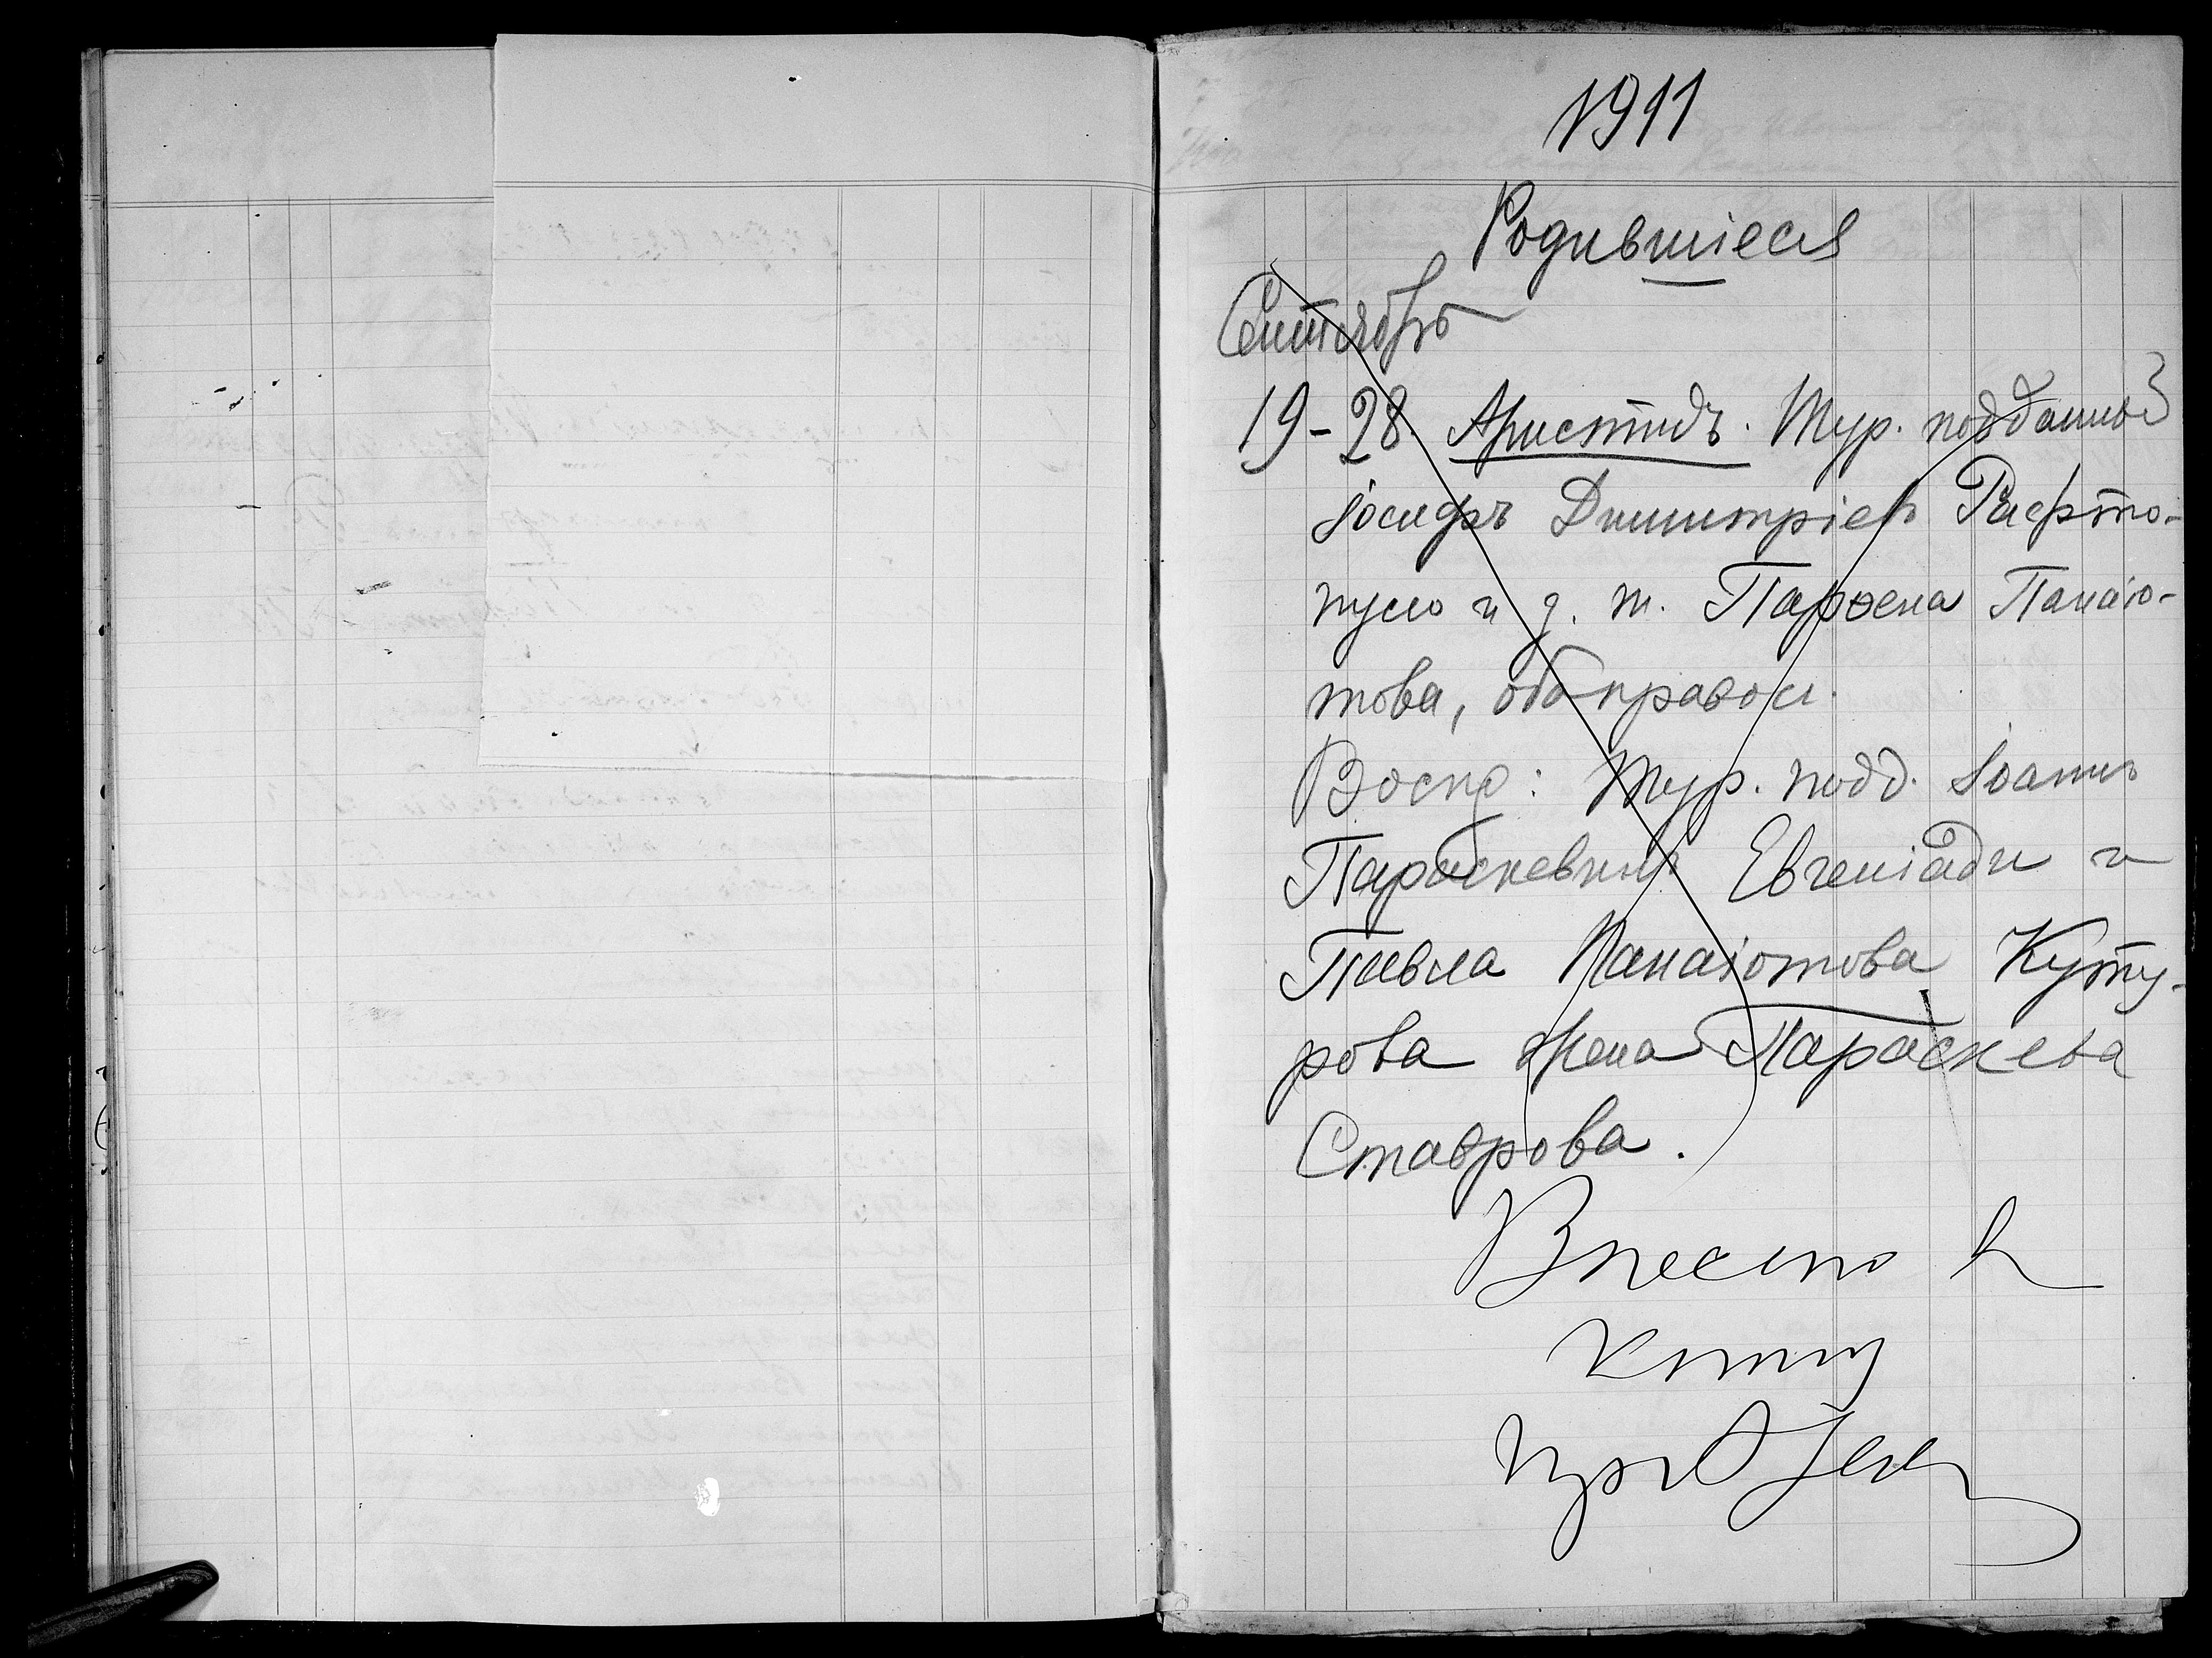 1911
Родившіеся
Сентябрь
19-28. Аристидъ. Тур. подданный
Іосифъ Димитріевъ Рафто-
пуло и з. ж. Парѳена Панаіо-
това, оба правосл.
Воспр: Тур. подд. Іоаннъ
Параскевинъ Евгеніади и
Павла Панаіотова Куту-
рова жена Параскева
Ставрова.
Внесено в
книгу